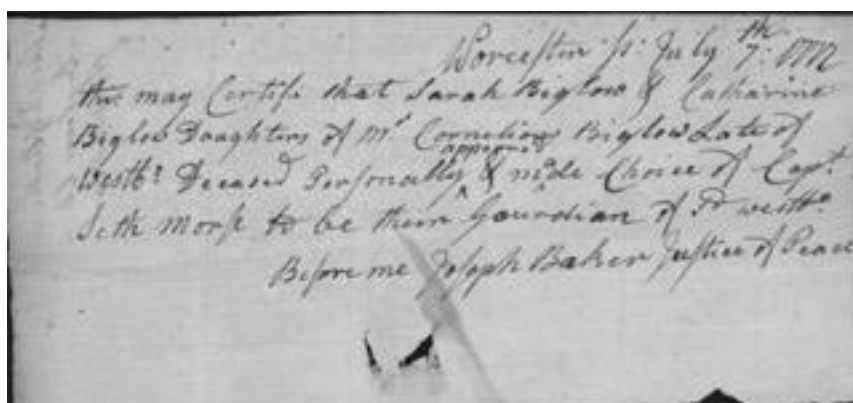 Worcester ss: July 7th: 1772
this may Certifi that Sarah Biglow & Catharine
Biglow Daughters of Mr Cornelious Biglow Late of
Westb.o Deceased Personally appeared & made Choice of Capt.
Seth Morse to be their Gourdian of sd westb.o
Before me Joseph Baker Justice of Peace